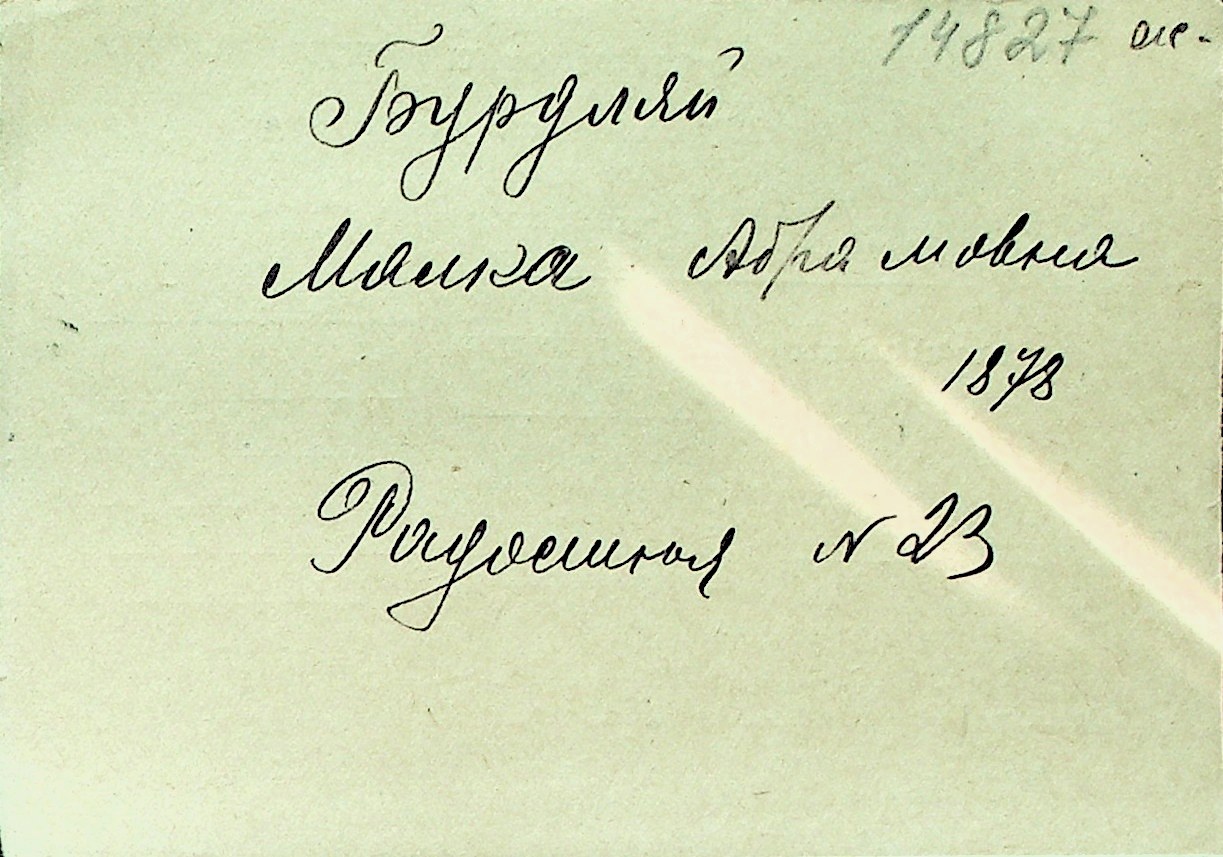 14827 ж.
Бурдляй
Малка Абрамовна
1878
Радостная N 23